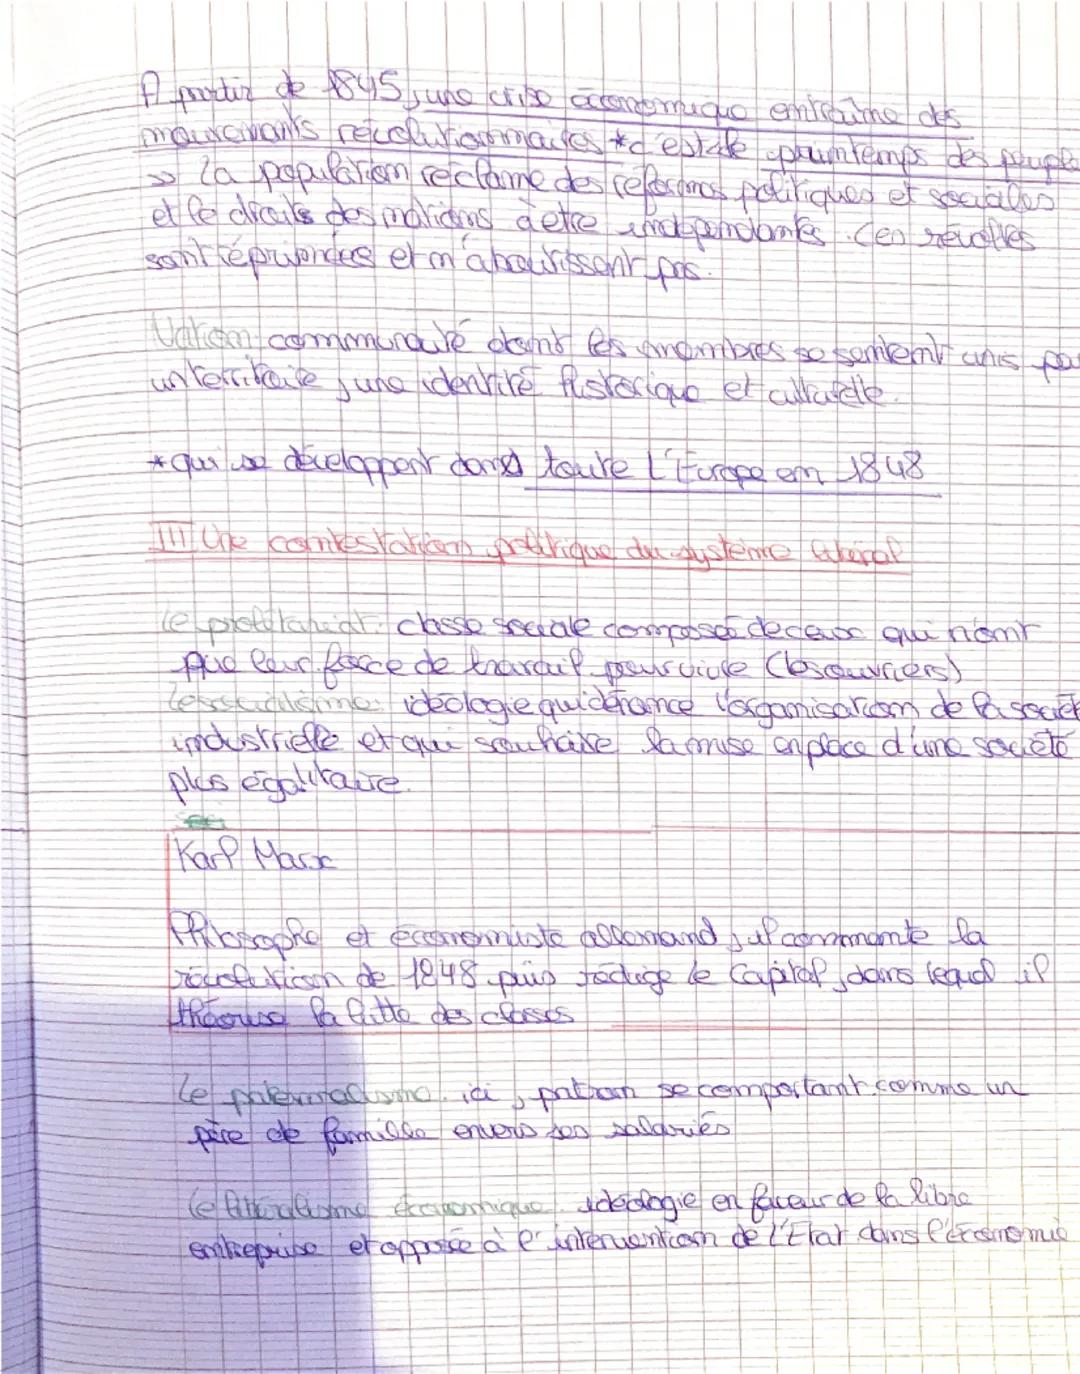 A partir de 1845, une crise économique entraîne des
mouvements révolutionnaires * c'est le printemps des peuple
=> la population réclame des réformes politiques et sociales
et le droits des nations à être indépendantes. Ces révoltes
sont réprimées et n'aboutissent pas.
Nation communauté dont les membres se sentent unis par
un territoire, une identité historique et culturelle.
* qui se développent dans toute l'Europe en 1848
III Une contestation politique du système libéral
Le prolétariat: classe sociale composée de ceux qui n'ont
que leur force de travail pour vivre (les ouvriers)
Le socialisme: idéologie qui dénonce l'organisation de la société
industrielle et qui souhaite la mise en place d'une société
plus égalitaire.
Karl Marx
Philosophe et économiste allemand, il commente la
révolution de 1848 puis rédige le Capital, dans lequel il
théorise la lutte des classes
Le paternalisme. ici, patron se comportant comme un
père de famille envers ses salariés
Le libéralisme économique. idéologie en faveur de la libre
entreprise et opposée à l'intervention de l'Etat dans l'économie